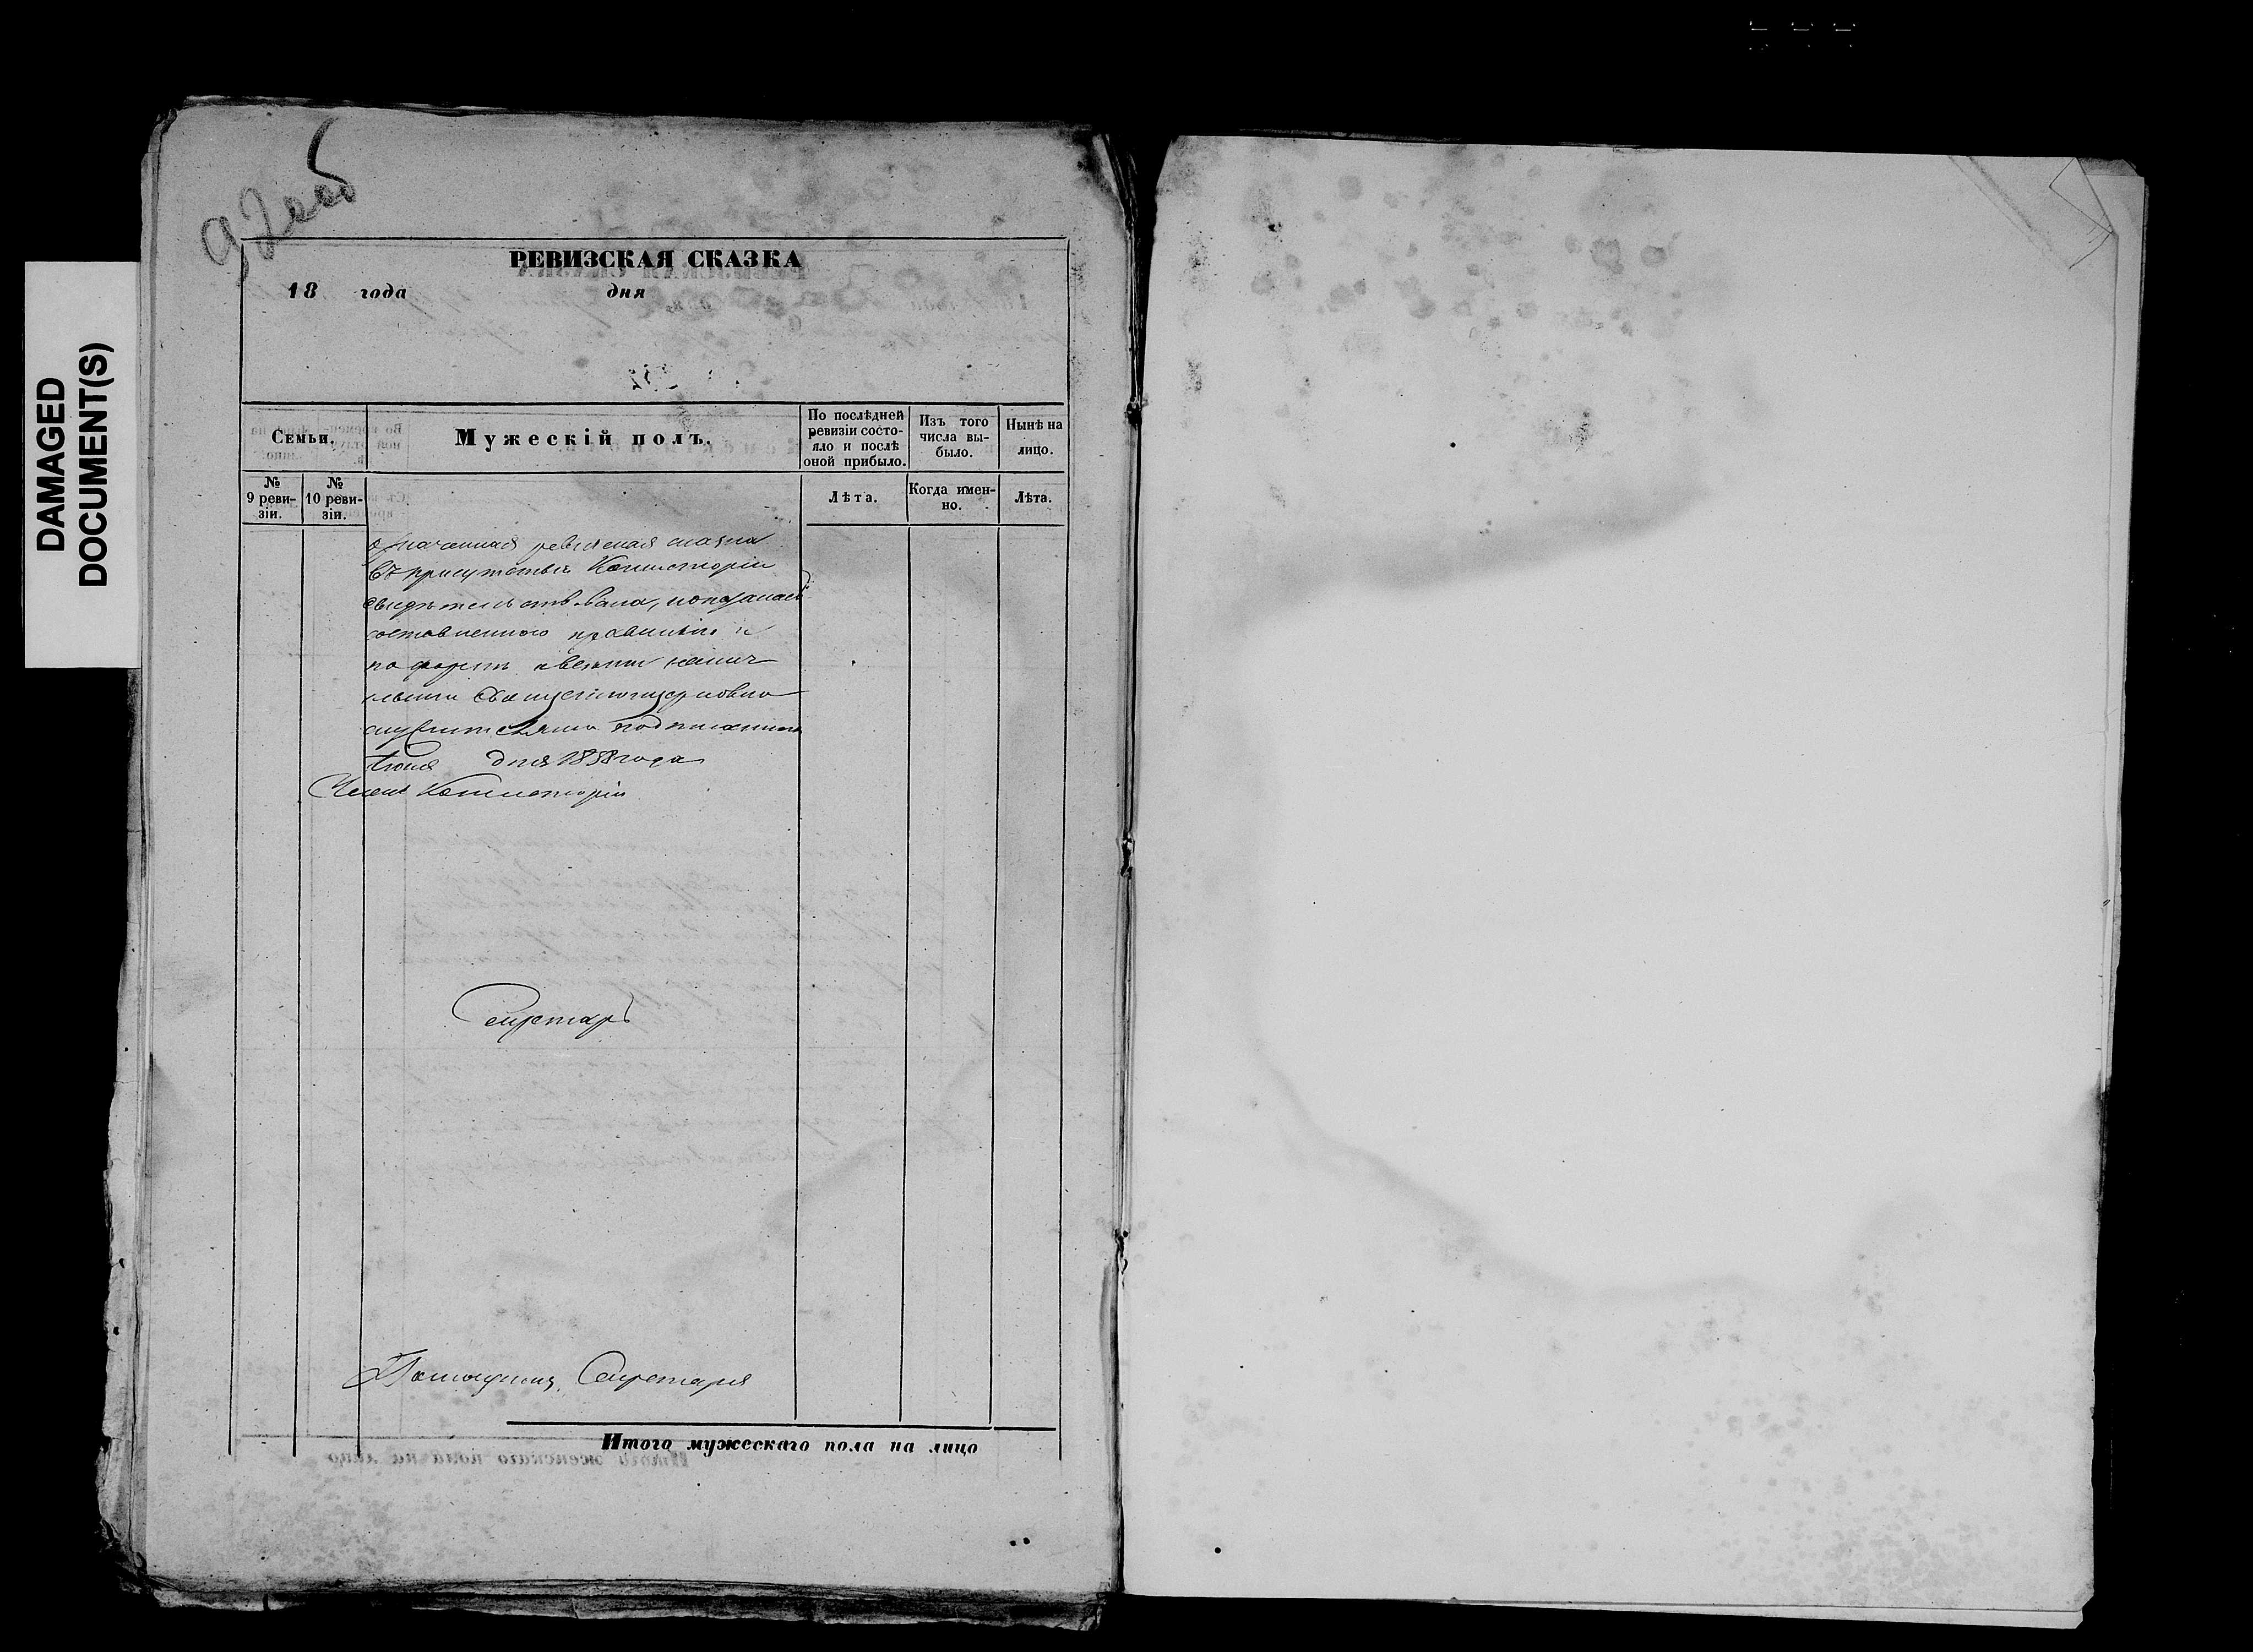 DAMAGED
DOCUMENT(S)
92 об
РЕВИЗСКАЯ СКАЗКА
18 года дня
Семьи.
Мужескій полъ.
По послѣдней
ревизіи состо-
яло и послѣ
оной прибыло.
Изъ того
числа вы-
было.
Нынѣ на
лицо.
№
9 реви-
зіи.
№
10 реви-
зіи.
Лѣта.
Когда имен-
но.
Лѣта.
означенная ревизская сказка
въ присутствіе Консисторіи
свидѣтельствована, показалась
составленною правильно и
по формѣ
священноцерковно
служителями
Іюня дня 1858 года
Членъ Консисторіи
Секретарь
Помощникъ Секретаря
Итого мужескаго пола на лицо